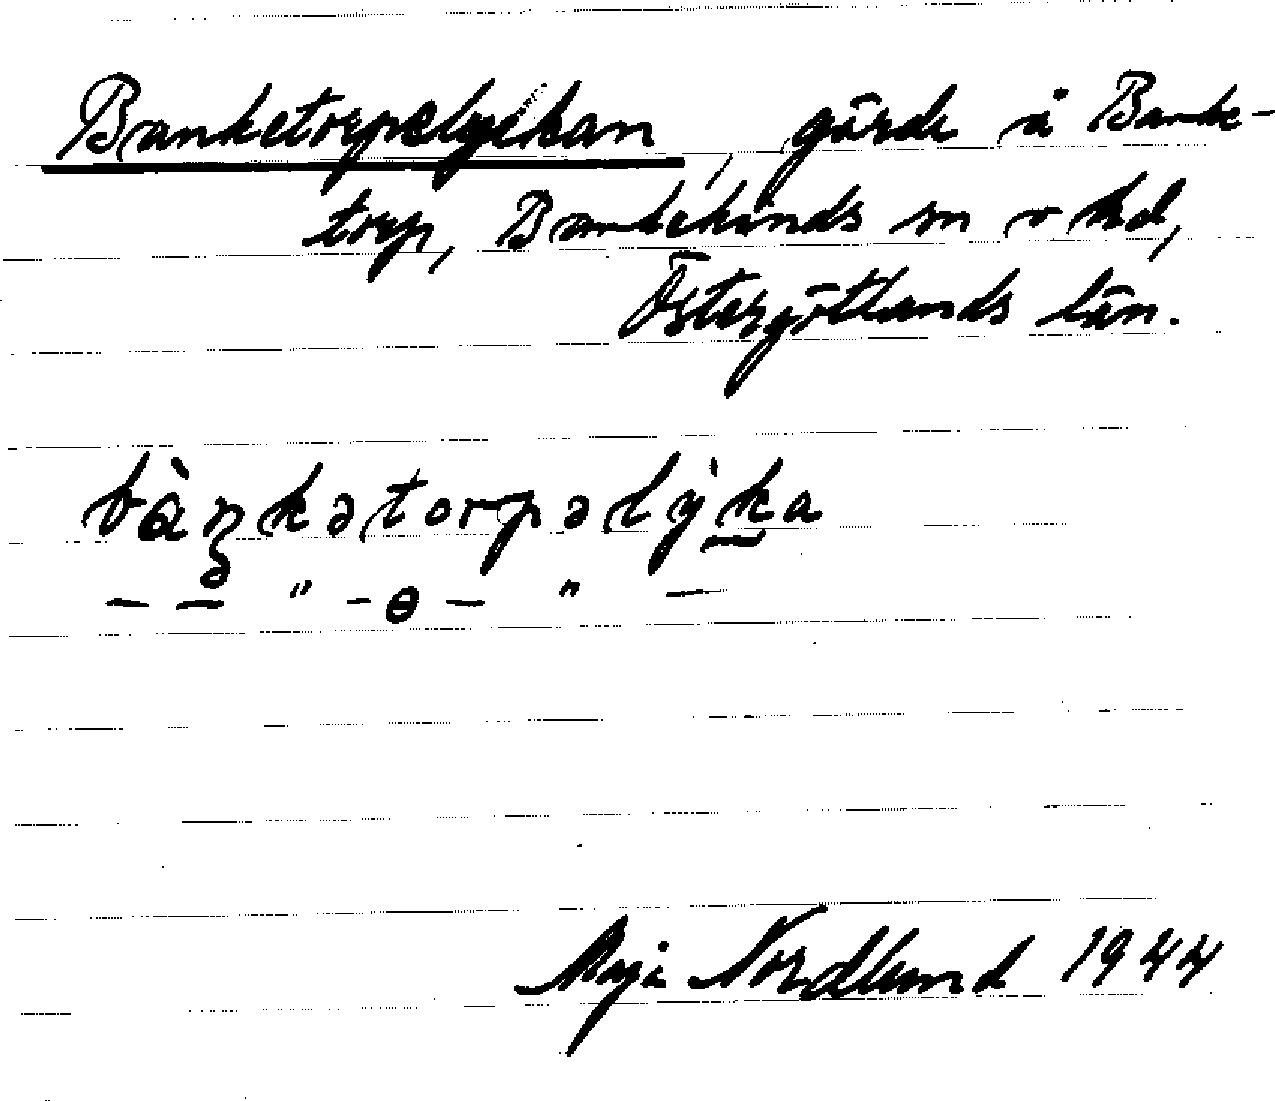 Banketorpelyckan, gärde å Banke-
torp, Bankekinds sn o hd,
Östergötlands län.
bàŋkətorpəlỳka
– – " – ɵ – " –
Maja Nordlund 1944